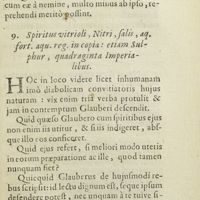 cum eæ à nemine, multo minus ab ipso, re-
prehendi meritò possint.
9. Spiritus vitrioli, Nitri, salis, aq.
fort. aqu. reg. in copia: etiam Sul-
phur, quadraginta Imperia-
libus.
HOc in loco videre licet inhumanam
imò diabolicam convitiatoris hujus
naturam: vix enim tria verba protulit &
jam in contemptum Glauberi defendit.
Quid quæso Glaubero cum spiritibus ejus
non enim iis utitur, & si iis indigeret, abs-
que illo ros conficeret.
Quid ejus refert, si meliori modo uteris
in eorum præparatione ac ille, quod tamen
nunquam fiet?
Quicquid Glauberus de hujusmodi re-
bus scripsit: id lectu dignum est, seque ipsum
defendere potest, nec unquam à te tuive si-